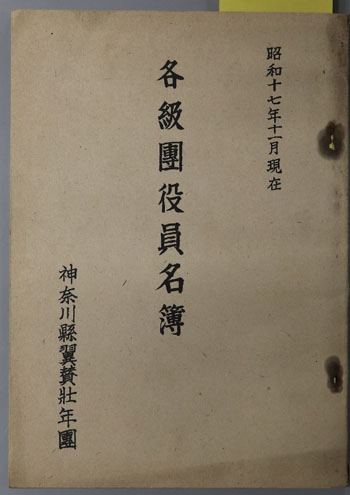 昭和十七年十一月現在
各級團役員名簿
神奈川縣翼賛壯年團